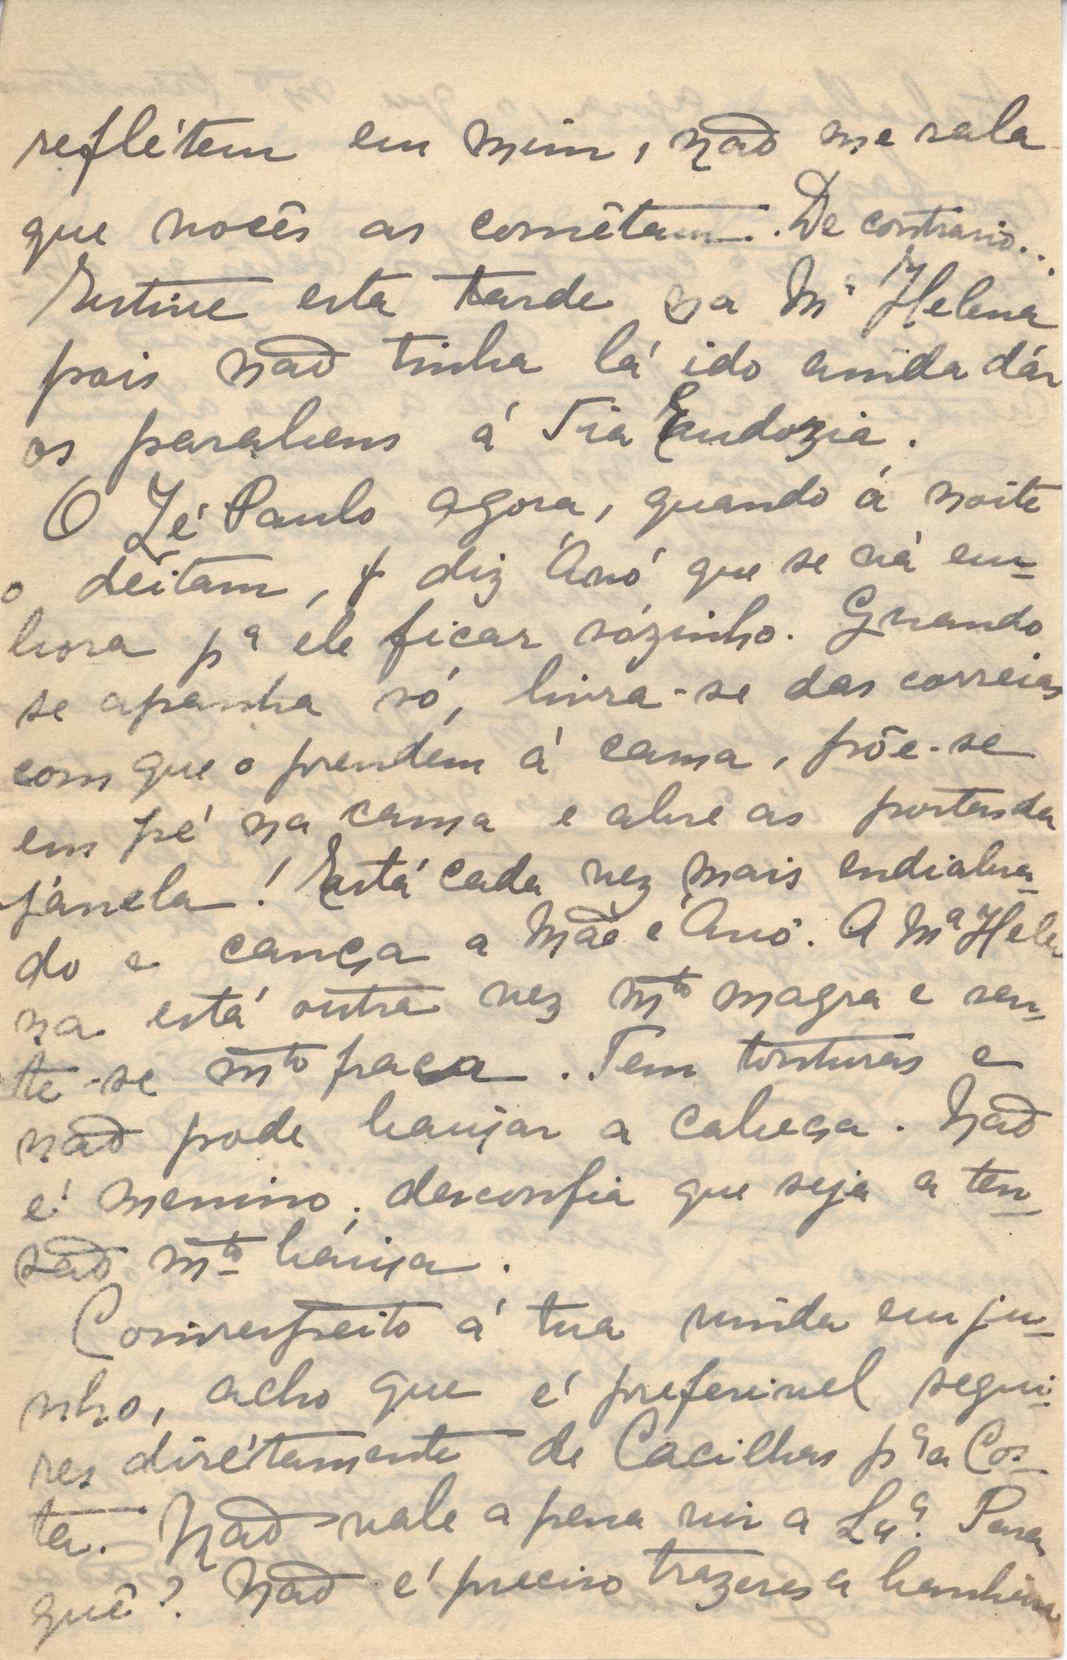 reflétem em mim, não me rala
que vocês as cométam. De contrario...
Estive esta tarde na Mª Helena
pois não tinha lá ido ainda dár
os parabens á Tia Eudozia.
O Zé Paulo agora, quando á noite
o deitam, diz á Avó que se vá em-
bora pª ele ficar sózinho. Quando
se apanha só, livra-se das correias
com que o prendem á cama, põe-se
em pé na cama e abre as portas da
janela! Está cada vez mais endiabra-
do e cança a Mãe e Avó. A Mª Hele-
na está outra vez mto magra e sen-
te-se mto fraca. Tem tonturas e
não pode baixar a cabeça. Não
é menino; desconfia que seja a ten-
são mto baixa.
Com respeito á tua vinda em ju-
nho, acho que é preferivel segui-
res dirétamente de Cacilhas pª a Cos-
ta. Não vale a pena vir a Lxª. Para
quê? Não é preciso trazeres a banheira